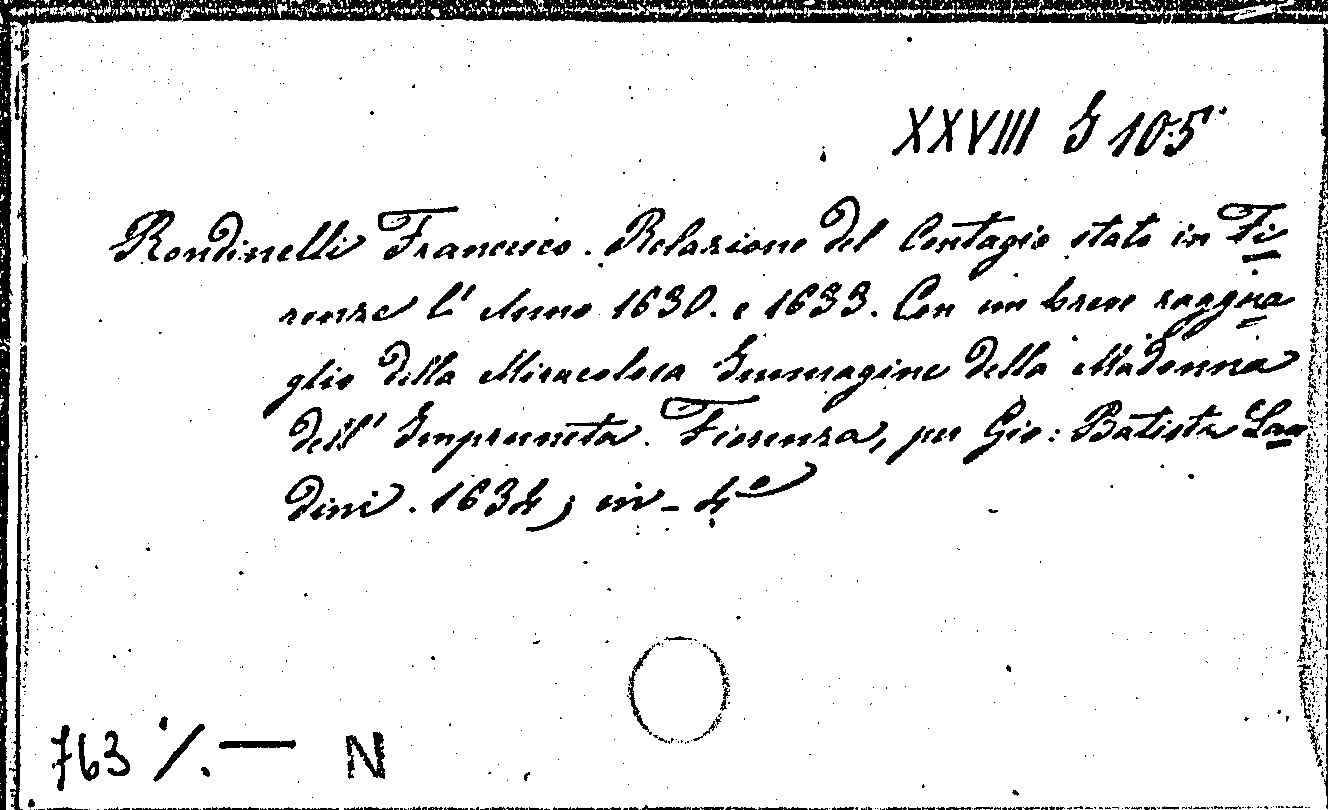 XXVIII G 105
Rondinelli Francesco. Relazione del Contagio stato in Fi
renze l' Anno 1630. e 1633. Con un breve raggua
glio della Miracolosa Immagine della Madonna
dell' Impruneta. Fiorenza, per Gio: Batista Lan
dini. 1634; in-4º
763 ·/. — N